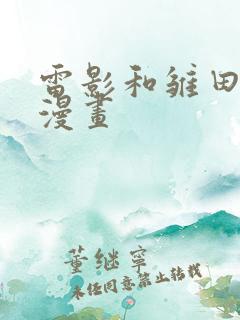 電影和雏田
漫畫
董继寧
未经同意禁止转载